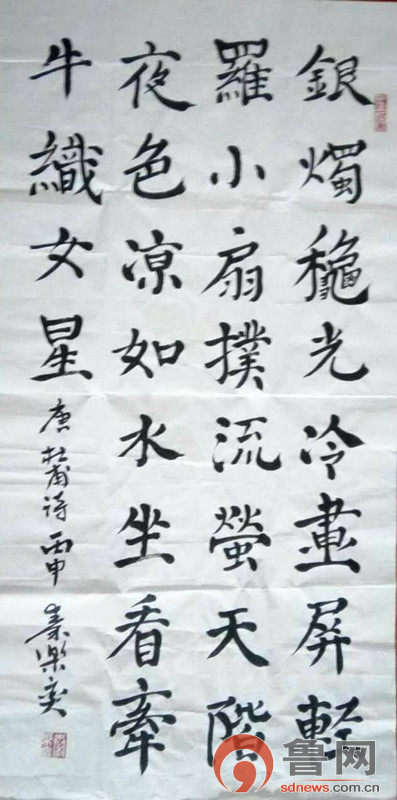 銀燭龝光冷畫屏輕
羅小扇撲流螢天階
夜色凉如水坐看牽
牛織女星
唐杜甫诗丙申 秦樂
鲁网
sdnews.com.cn